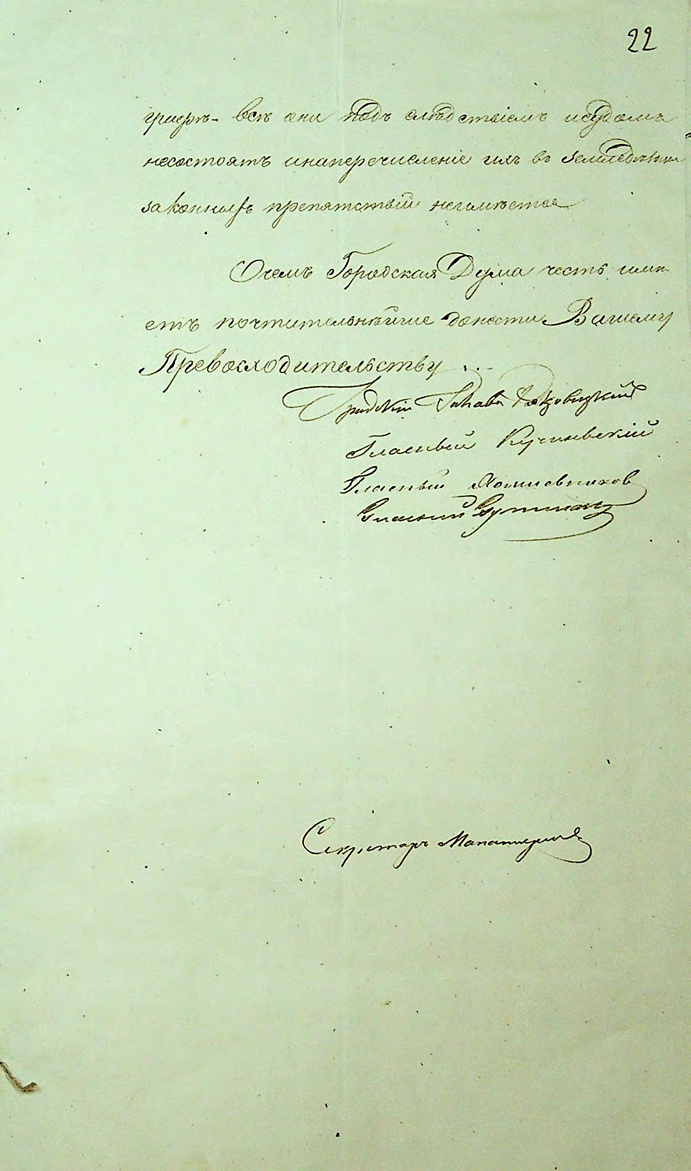 22
всѣ они подъ слѣдствіемъ исудомъ
несостоятъ инаперечисленіе ихъ въ
законныхъ препятствій неимѣется
Очемъ Городская Дума честь имѣ-
етъ почтительнѣйше донести Вашему
Превосходительству
Градскій Глава
Гласный Кучиневскій
Гласный
Гласный
Секретарь